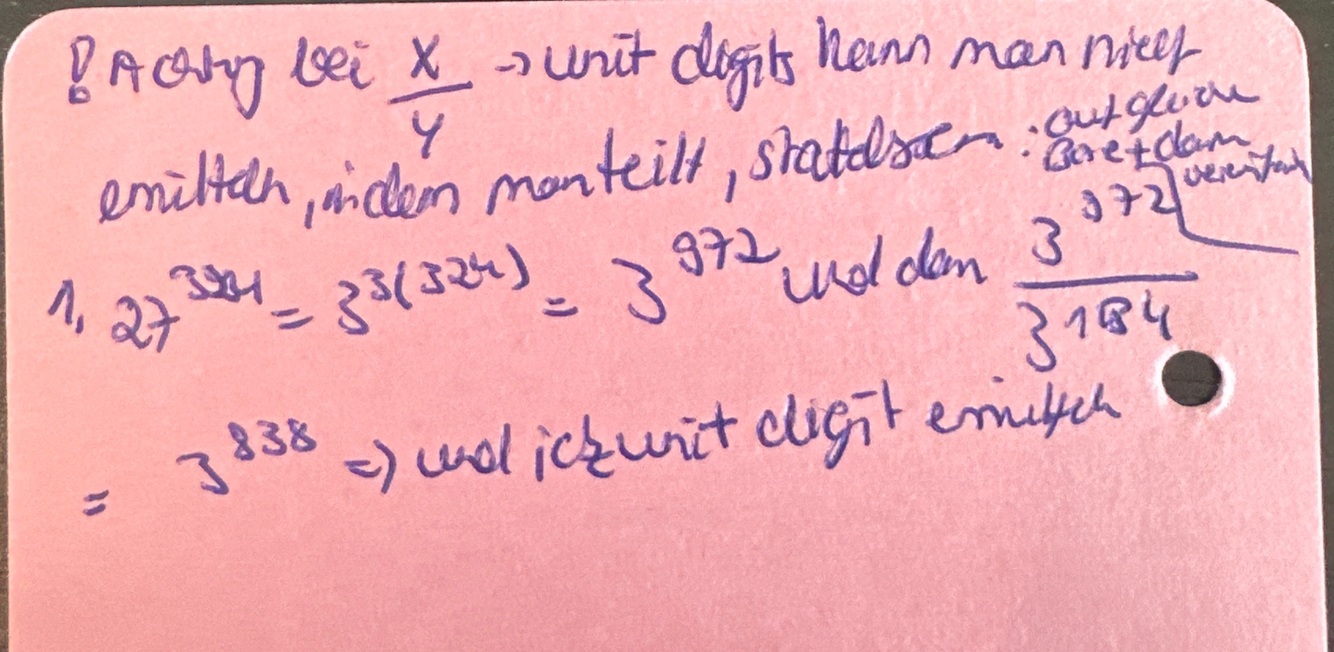 ! Achtung bei X/Y → unit digits kann man nicht
ermitteln, indem man teilt, stattdessen: auf gleiche
Base + dann
vereinfachen
1. 27^324 = 3^3(324) = 3^972 und dann 3^972/3^134
= 3^838 => und jetzt unit digit ermitteln